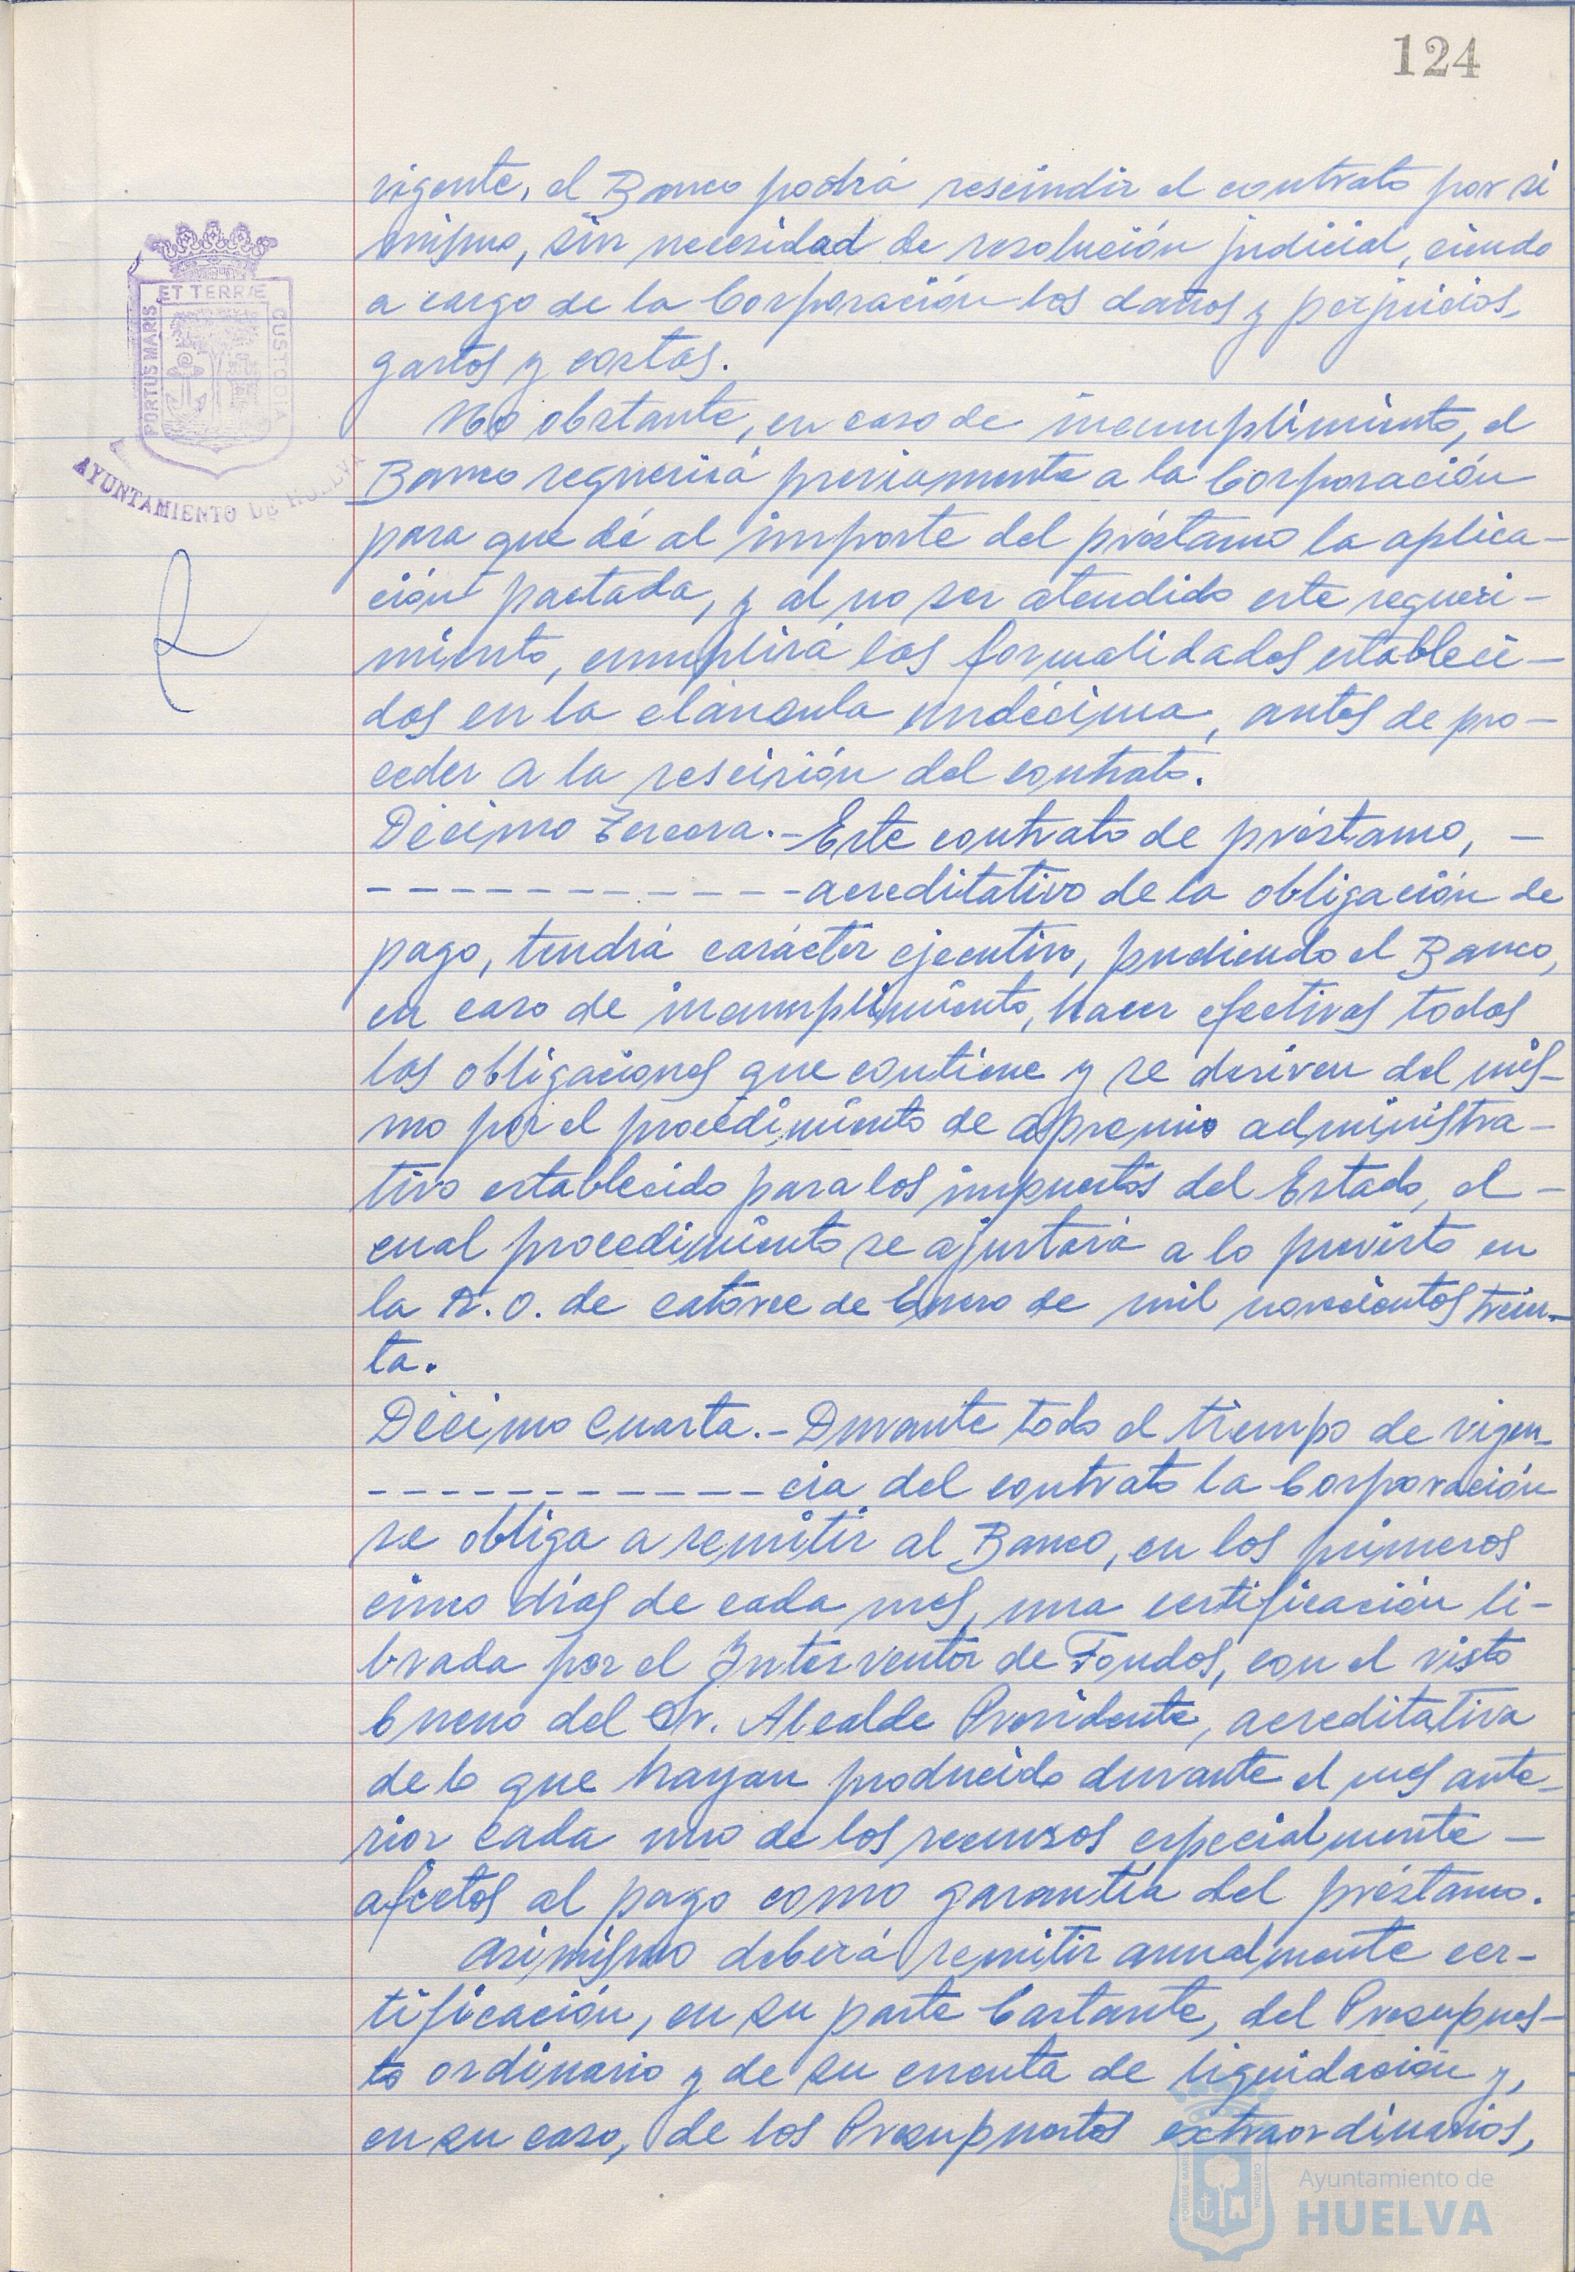 124
vigente, el Banco podrá rescindir el contrato por si
mismo, sin necesidad de resolución judicial, siendo
a cargo de la Corporación los daños y perjuicios,
gastos y costas.
ET TERRÆ
PORTUS MARIS
CUSTODIA
AYUNTAMIENTO DE HUELVA
No obstante, en caso de incumplimiento, el
Banco requerirá previamente a la Corporación
para que dé al importe del préstamo la aplica-
ción pactada, y al no ser atendido este requeri-
miento, cumplirá las formalidades estableci-
das en la cláusula undécima, antes de pro-
ceder a la rescisión del contrato.
Décimo Tercera.- Este contrato de préstamo, -
- - - - - - - - - - - - acreditativo de la obligación de
pago, tendrá carácter ejecutivo, pudiendo el Banco,
en caso de incumplimiento, hacer efectivas todas
las obligaciones que contiene y se deriven del mis-
mo por el procedimiento de apremio administra-
tivo establecido para los impuestos del Estado, el -
cual procedimiento se ajustará a lo previsto en
la R.O. de catorce de Enero de mil novecientos trein-
ta.
Décimo Cuarta.- Durante todo el tiempo de vigen-
- - - - - - - - - - - - cia del contrato la Corporación
se obliga a remitir al Banco, en los primeros
cinco días de cada mes, una certificación li-
brada por el Interventor de Fondos, con el visto
bueno del Sr. Alcalde Presidente, acreditativa
de lo que hayan producido durante el mes ante-
rior cada uno de los recursos especialmente -
afectos al pago como garantía del préstamo.
Asimismo deberá remitir anualmente cer-
tificación, en su parte bastante, del Presupues-
to ordinario y de su cuenta de liquidación y,
en su caso, de los Presupuestos extraordinarios,
Ayuntamiento de
HUELVA